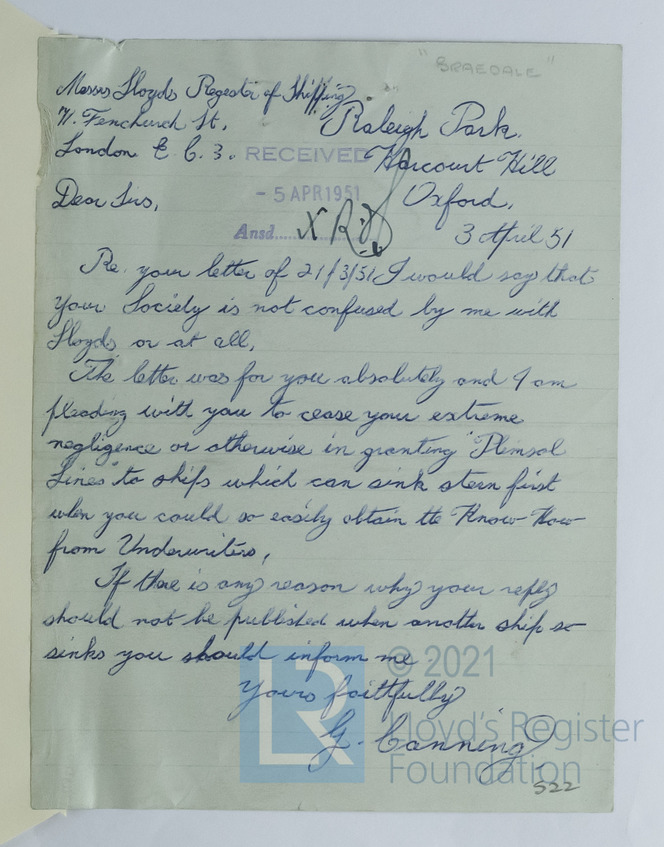 "BRAEDALE"
Messrs Lloyds Register of Shipping
71. Fenchurch St.
London E.C.3.
Raleigh Park.
Harcourt Hill
Oxford.
3 April 51
RECEIVED
- 5 APR 1951
Ansd....
Dear Sirs,
Re. your letter of 21/3/51 I would say that
your Society is not confused by me with
Lloyds or at all.
The letter was for you absolutely and I am
pleading with you to cease your extreme
negligence or otherwise in granting "Plimsol
Lines" to ships which can sink stern first
when you could so easily obtain the Know-How
from Underwriters.
If there is any reason why your reply
should not be published when another ship so
sinks you should inform me
Yours faithfully
G. Canning
522
© 2021
LR
Lloyd's Register
Foundation